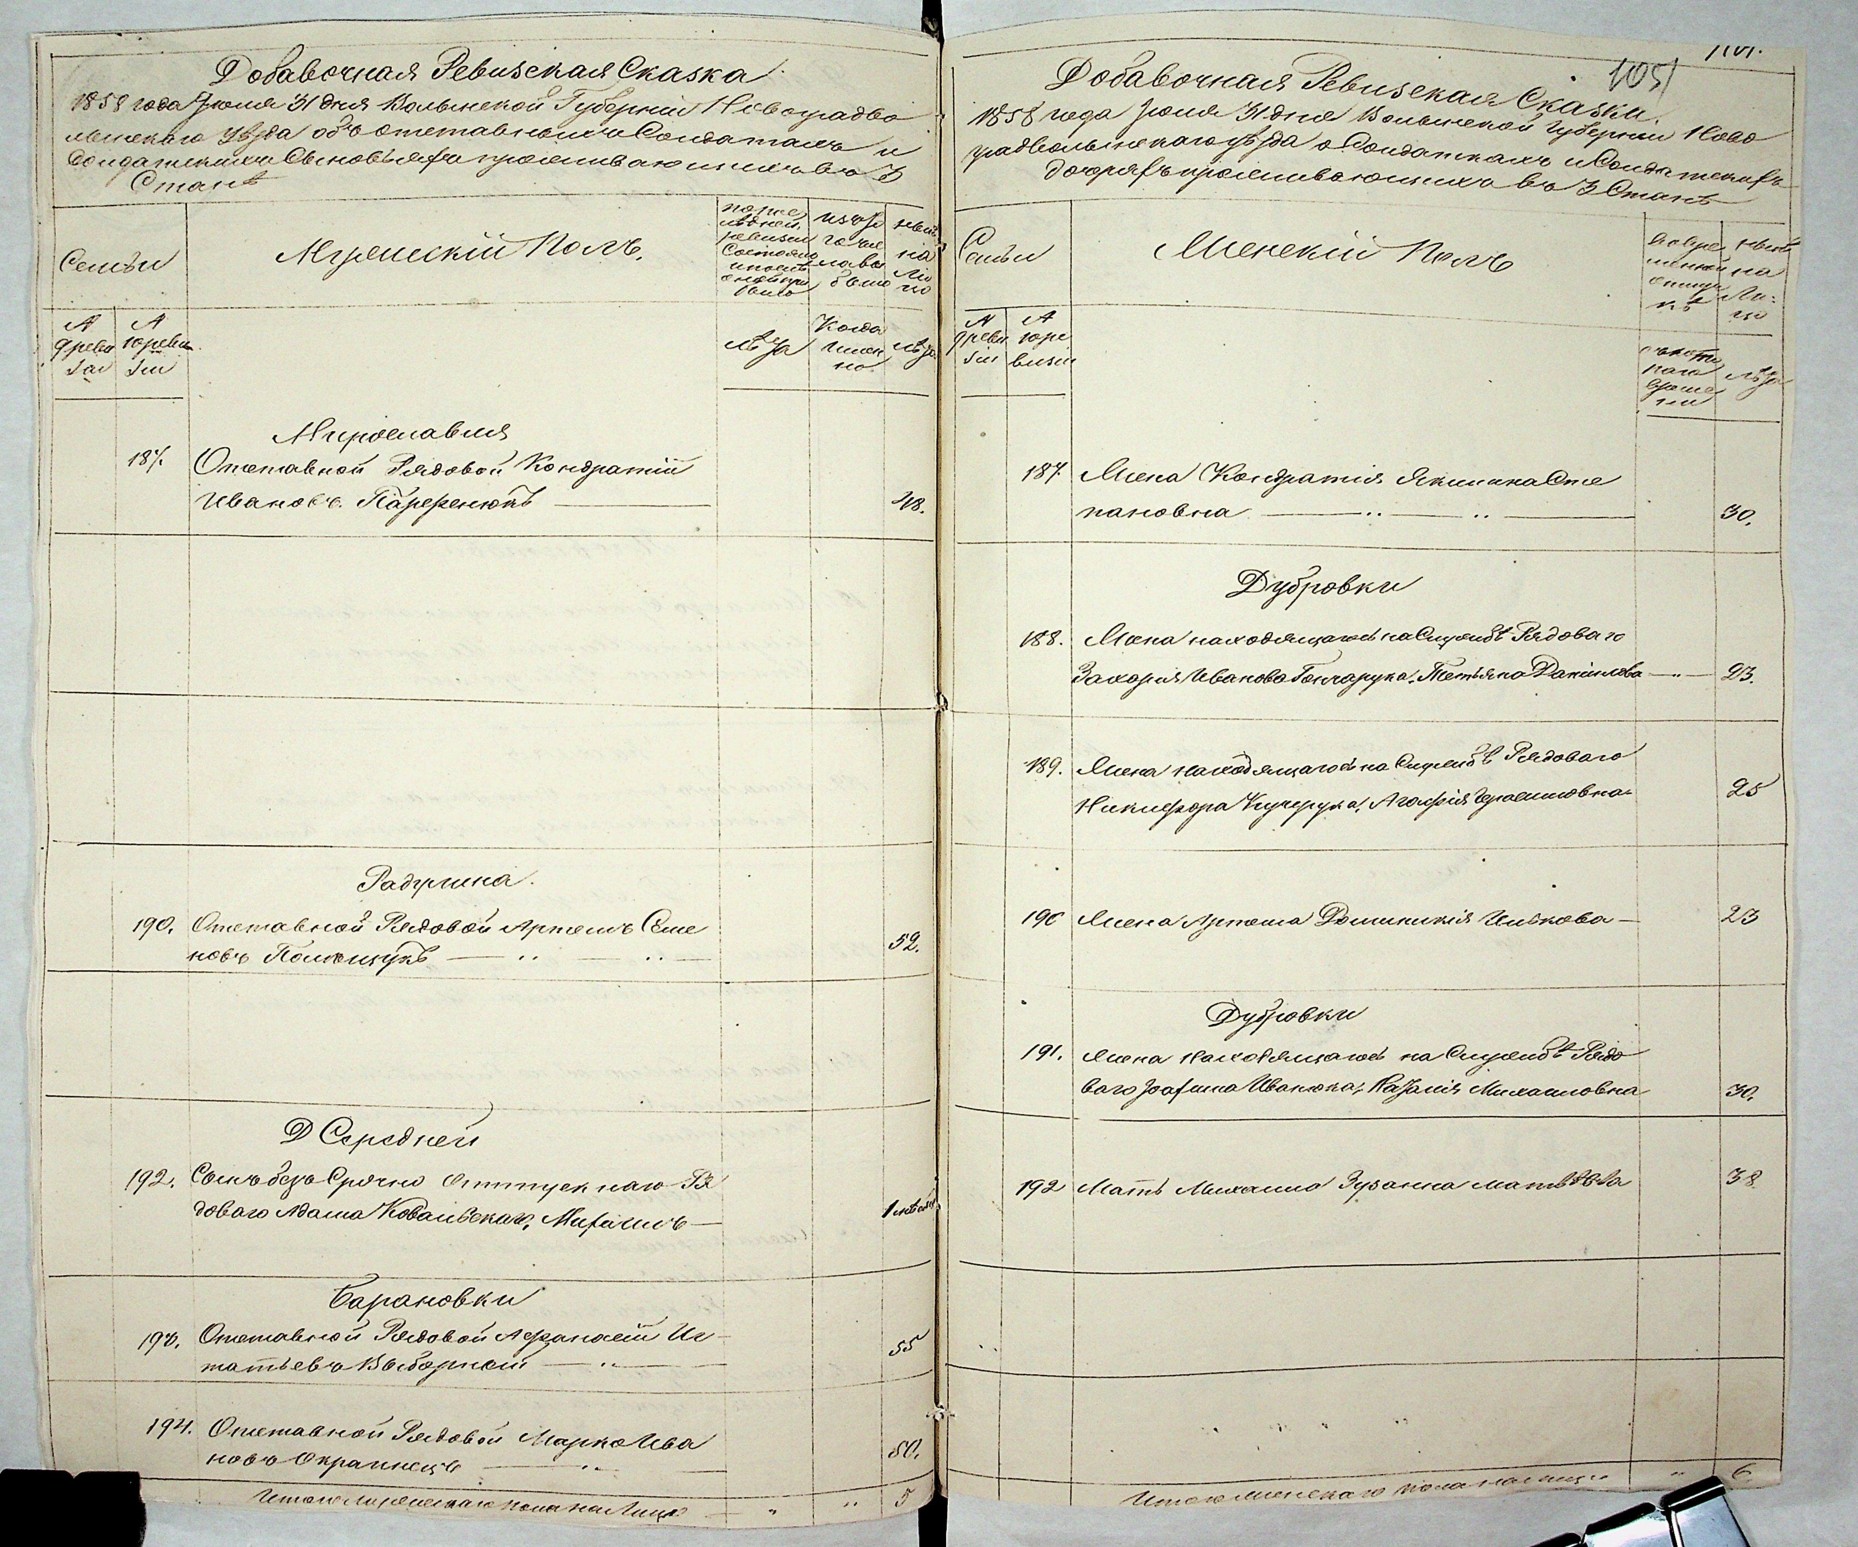 Добавочная Ревизская Сказка
1858 года Июля 31 дня Волынской Губерніи Новоградво
лынскаго Уѣзда объ отставныхъ Солдатахъ и
Солдатскихъ Сыновьяхъ проживающихъ въ 3
Станѣ
Семьи
Мужескій Полъ.
ревизіи
Состояло
изъ
числа
было
нынѣ
на
ли
цо
№
9 реви
зіи
№
10 реви
зіи
лѣта
Когда
имен
но
лѣта
Мирославля
187. Отставной Рядовой Кондратій
Ивановъ 48.
Радулина.
190. Отставной Рядовой Артемъ Семе
новъ Полищукъ 52.
Д Середней
192. Сынъ безъ Срочно отпускнаго Ря
доваго Адама Ковальскаго, Михаилъ 1
Барановки
193. Отставной Рядовой Афанасій Иг
натьевъ Выборной 55
194. Отставной Рядовой Марко Ива
новъ Окраинецъ 80.
Итого мужескаго пола на Лицо " " 5
105
Добавочная Ревизская Сказка.
1858 года Июля 31 дня Волынской Губерніи Ново
градволынскаго уѣзда о Солдаткахъ и Солдатскихъ
дочеряхъ проживающихъ въ 3 Станѣ
Семьи
Женскій Полъ
во вре
менной
отлуч
кѣ
нынѣ
на
Ли-
цо
№
9 реви
зіи
№
10 ре
визіи
съ кото
раго
време
ни
лѣта
187. Жена Кондратія Якилина Сте
пановна 30.
Дубровки
188. Жена находящагося на Службѣ Рядоваго
Захорія Иванова Гончарука, Татьяна Данилова " 23.
189. Жена находящагося на Службѣ Рядоваго
Никифора Кучерука, Агафія Герасимовна 25
190 Жена Артема Доминикія Илькова 23
Дубровки
191. Жена находящагося на Службѣ Рядо
ваго Иванюка, Михаиловна 30.
192 Мать Михаила Зузанна 38
Итого женскаго пола на лицо " 6